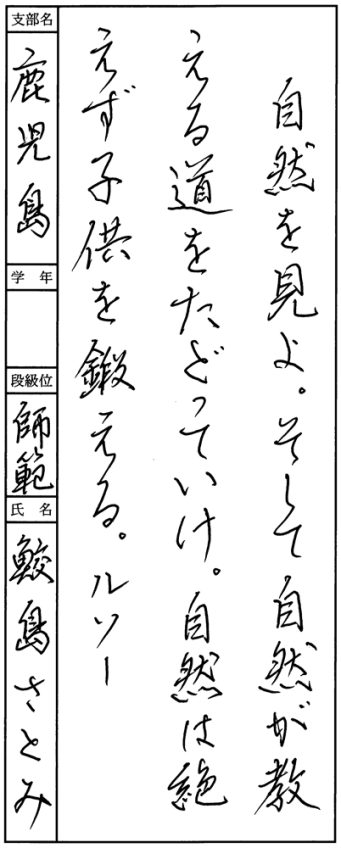 自然を見よ。そして自然が教
える道をたどっていけ。自然は絶
えず子供を鍛える。ルソー
支部名
鹿児島
学年
段級位
師範
氏名
鮫島さとみ